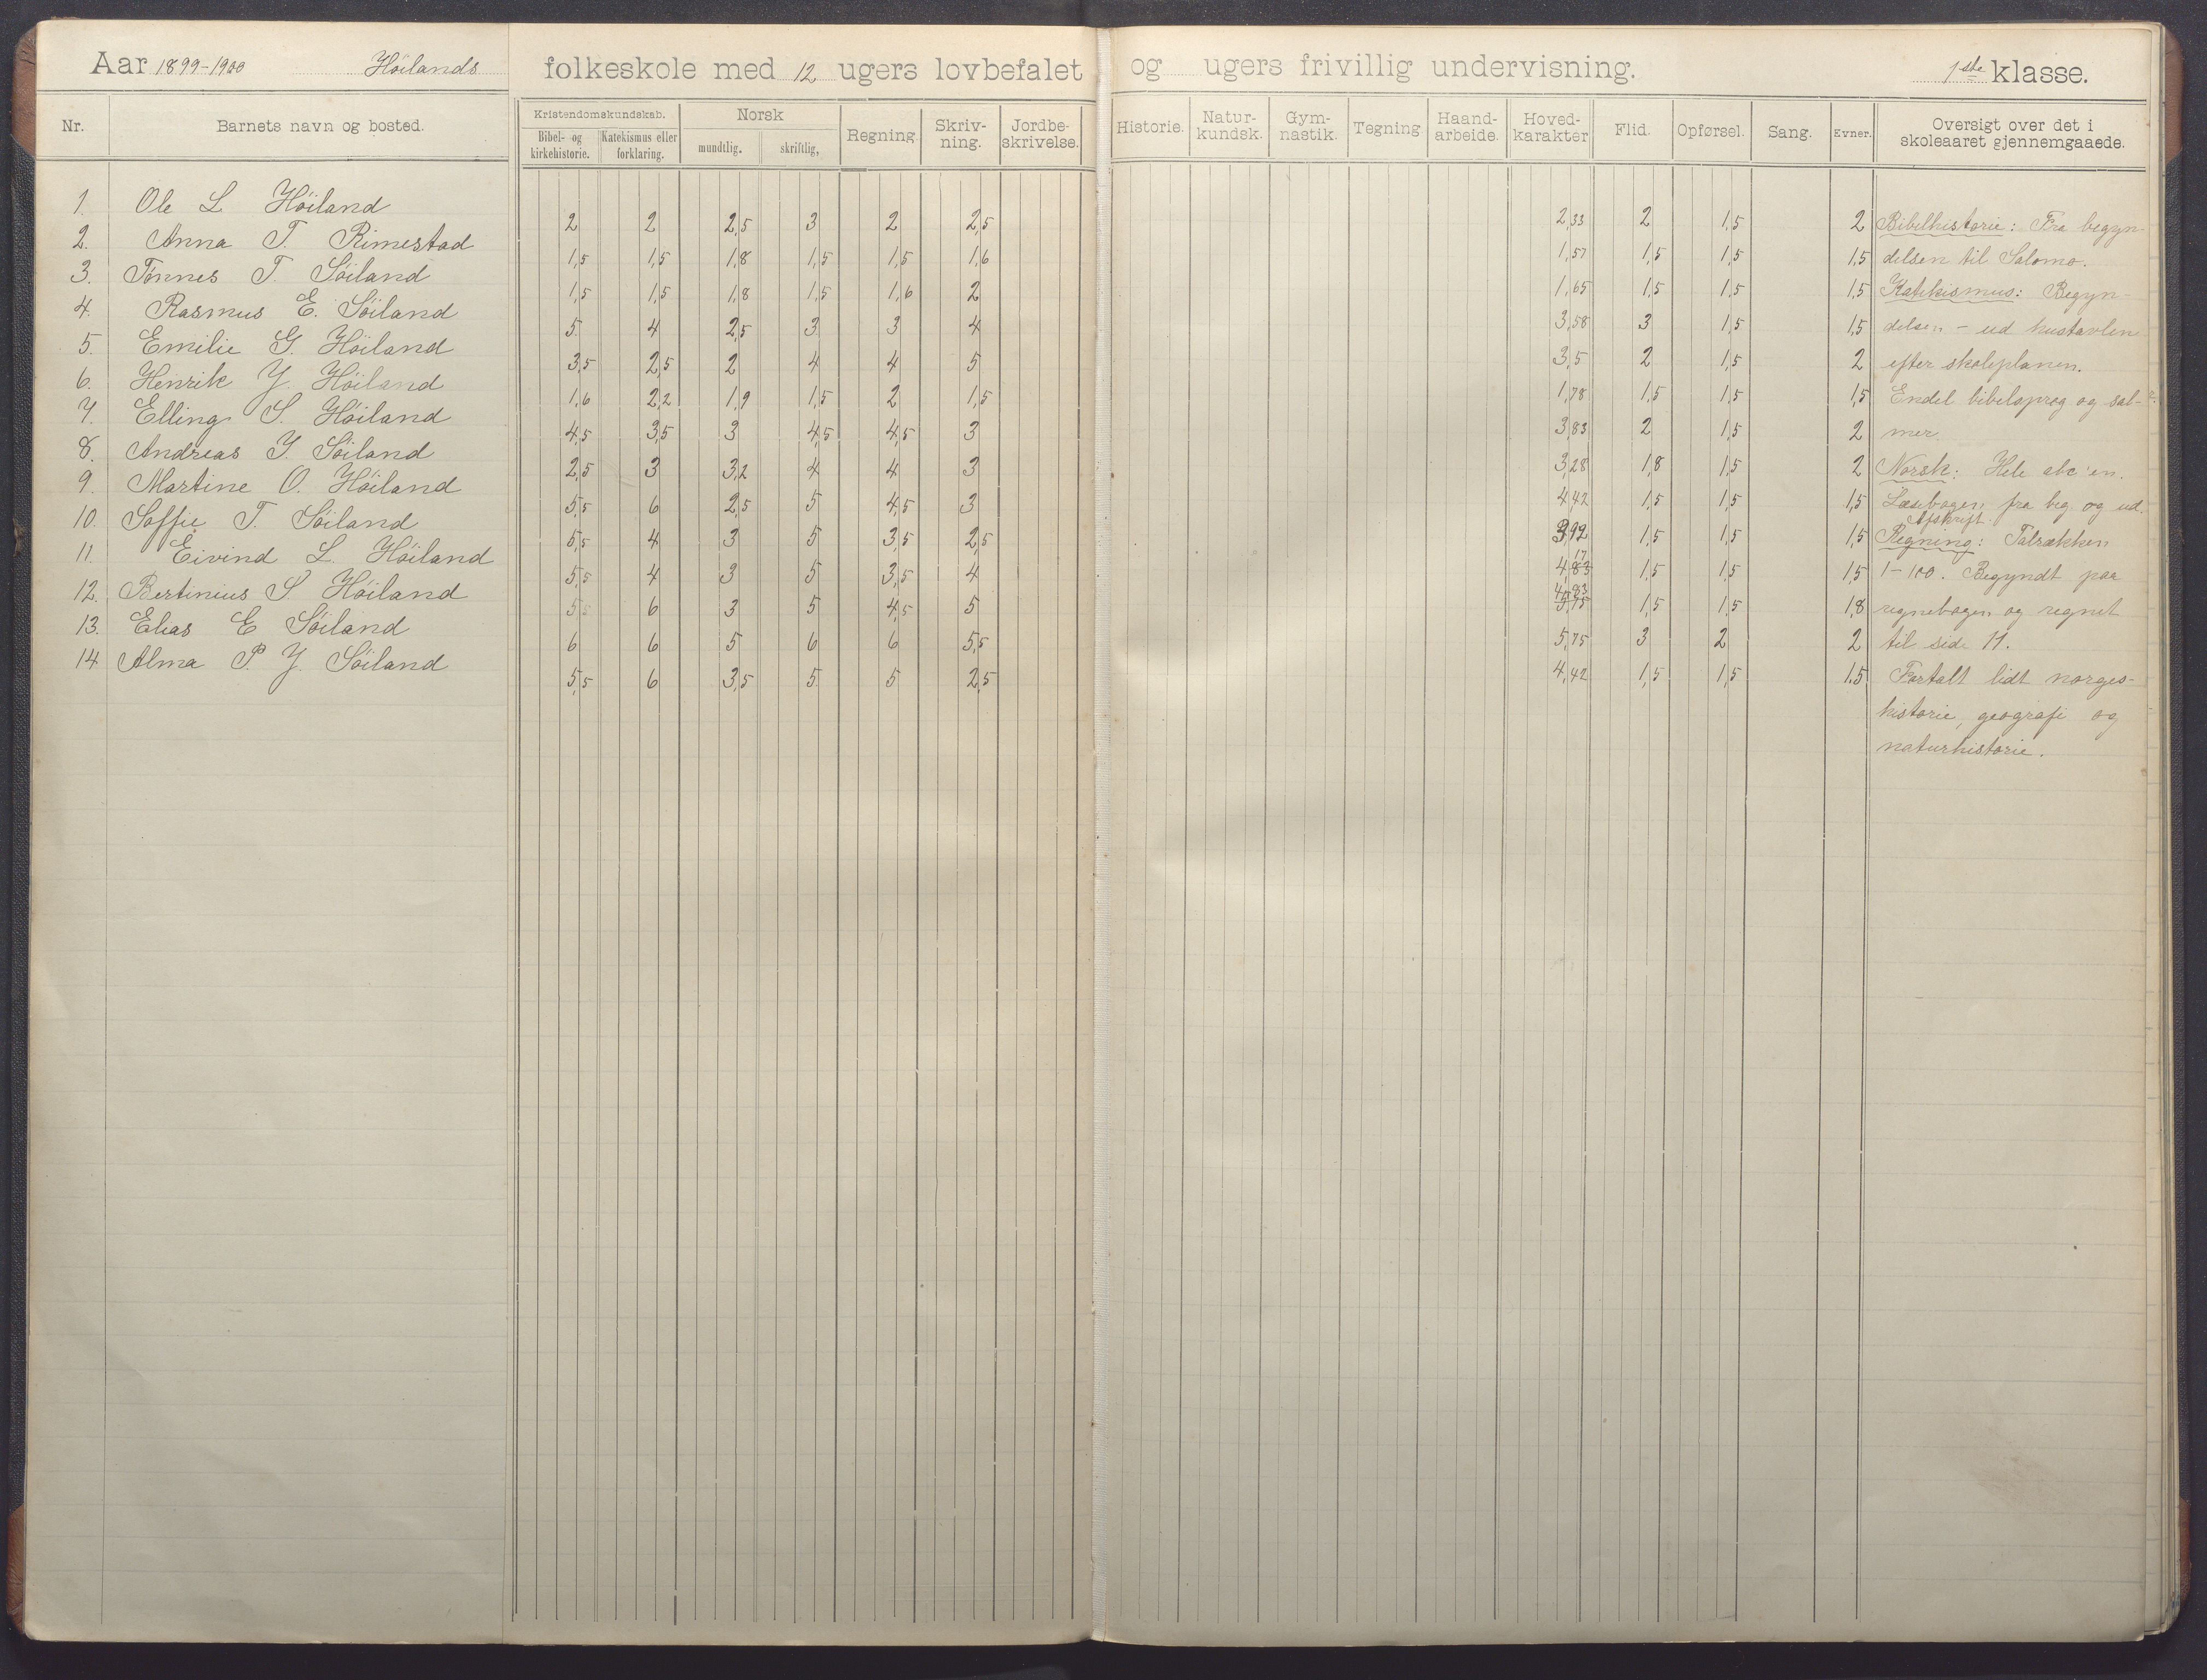 Aar 1899-1900 Höilands folkeskole med 12 ugers lovbefalet og ugers frivillig undervisning. 1ste klasse.
Nr. Barnets navn og bosted. Kristendomskundskab. Bibel- og kirkehistorie. Katekismus eller forklaring. Norsk mundtlig. skriftlig, Regning. Skriv-ning. Jordbe-skrivelse. Historie. Natur-kundsk. Gym-nastik. Tegning. Haand-arbeide. Hoved-karakter Flid. Opførsel. Sang. Evner. Oversigt over det i skoleaaret gjennemgaaede.
1. Ole L Höiland 2 2 2,5 3 2 2,5 2,33 2 1,5 2 Bibelhistorie: Fra begyn-
2. Anna T. Rimestad 1,5 1,5 1,8 1,5 1,5 1,6 1,57 1,5 1,5 1,5 delsen til Salomo.
3. Tönnes T. Söiland 1,5 1,5 1,8 1,5 1,6 2 1,65 1,5 1,5 1,5 Katekismus: Begyn-
4. Rasmus E. Söiland 5 4 2,5 3 3 4 3,58 3 1,5 1,5 delsen - ud hustavlen
5. Emilie G. Höiland 3,5 2,5 2 4 4 5 3,5 2 1,5 2 efter skoleplanen.
6. Henrik J. Höiland 1,6 2,2 1,9 1,5 2 1,5 1,78 1,5 1,5 1,5 Endel bibelsprog og sal-
7. Elling S. Höiland 4,5 3,5 3 4,5 4,5 3 3,83 2 1,5 2 mer.
8. Andreas J. Söiland 2,5 3 3,2 4 4 3 3,28 1,8 1,5 2 Norsk: Hele abc'en.
9. Martine O. Höiland 5,5 6 2,5 5 4,5 3 4,42 1,5 1,5 1,5 Læsebogen fra beg. og ud.
Afskrift.
10. Soffie T. Söiland 5,5 4 3 5 3,5 2,5 3,92 1,5 1,5 1,5 Regning: Talrækken
11. Eivind L. Höiland 5,5 4 3 5 3,5 4 4,17 1,5 1,5 1,5 1-100. Begyndt paa
12. Bertinius S Höiland 5,5 6 3 5 4,5 5 4,83 1,5 1,5 1,8 regnebogen og regnet
13. Elias E Söiland 6 6 5 6 6 5,5 5,75 3 2 2 til side 11.
14 Alma P. J. Söiland 5,5 6 3,5 5 5 2,5 4,42 1,5 1,5 1.5 Fortalt lidt norges-
historie, geografi og
naturhistorie.